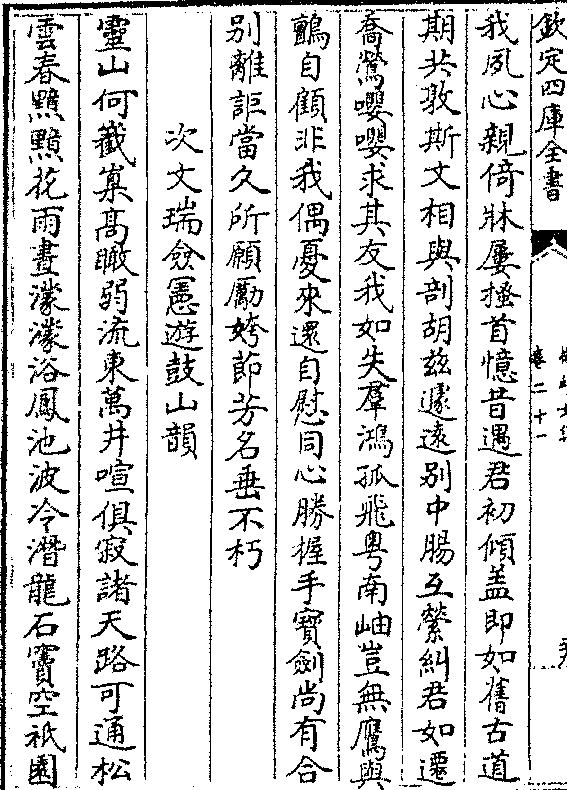 欽定四庫全書
卷二十一
我夙心親倚牀屢搔首憶昔遇君初傾盖即如舊古道
期共敦斯文相與剖胡兹遽遠别中腸互縈糾君如遷
喬鶯嚶嚶求其友我如失羣鴻孤飛粤南岫豈無鷹與
鸇自顧非我偶憂來還自慰同心勝握手寶劍尚有合
别離詎當久所願勵姱節芳名垂不朽
次文瑞僉憲遊鼓山韻
靈山何巀嶪髙瞰弱流東萬井喧俱寂諸天路可通松
雲春黯黯花雨晝濛濛浴鳳池波冷潛龍石竇空祇園